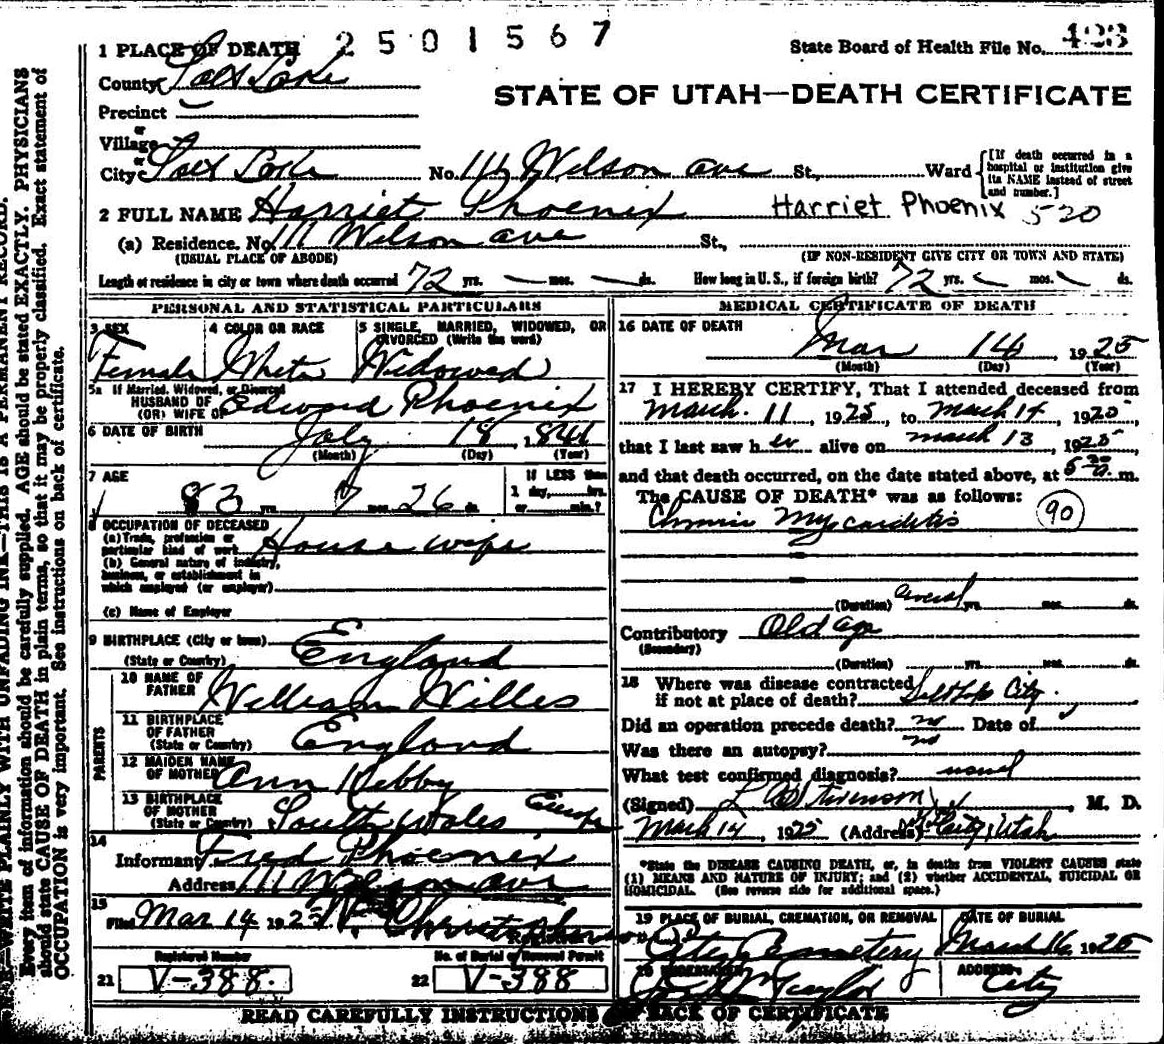 2501567
State Board of Health File No. 423
STATE OF UTAH—DEATH CERTIFICATE
1 PLACE OF DEATH
County Salt Lake
Precinct
or
Village
or
City Salt Lake No. Wilson ave St., Ward
[If death occurred in a hospital or institution give its NAME instead of street and number.]
2 FULL NAME Harriet Phoenix Harriet Phoenix 520
(a) Residence. No. 111 Wilson ave St.,
(USUAL PLACE OF ABODE) (IF NON-RESIDENT GIVE CITY OR TOWN AND STATE)
Length of residence in city or town where death occurred 72 yrs. — mos. — ds. How long in U. S., if foreign birth? 72 yrs. mos. ds.
PERSONAL AND STATISTICAL PARTICULARS
3 SEX
Female
4 COLOR OR RACE
White
5 SINGLE, MARRIED, WIDOWED, OR
DIVORCED (Write the word)
Widowed
5a If Married, Widowed, or Divorced
HUSBAND OF
(OR) WIFE OF Edward Phoenix
6 DATE OF BIRTH July 18, 1841
(Month) (Day) (Year)
7 AGE
83 yrs. 7 mos. 26 ds.
If LESS than
1 day,......hrs.
or......min.?
8 OCCUPATION OF DECEASED
(a) Trade, profession or
particular kind of work House wife
(b) General nature of industry,
business, or establishment in
which employed (or employer)
(c) Name of Employer
9 BIRTHPLACE (City or town)
(State or Country) England
PARENTS
10 NAME OF
FATHER William Willes
11 BIRTHPLACE
OF FATHER
(State or Country) England
12 MAIDEN NAME
OF MOTHER Ann Kebby
13 BIRTHPLACE
OF MOTHER
(State or Country) South Wales Europe
14
Informant Fred Phoenix
Address 111 Wilson ave
15
Filed Mar 14 1925
Registrar
Registered Number
21 V-388.
No. of Burial or Removal Permit
22 V-388
MEDICAL CERTIFICATE OF DEATH
16 DATE OF DEATH
Mar 14 1925
(Month) (Day) (Year)
17 I HEREBY CERTIFY, That I attended deceased from
March 11, 1925, to March 14, 1925,
that I last saw her alive on march 13, 1925,
and that death occurred, on the date stated above, at 5 30 a. m.
The CAUSE OF DEATH* was as follows:
Chronic Myocarditis 90
(Duration) several yrs. mos. ds.
Contributory Old age
(Secondary)
(Duration) yrs. mos. ds.
18 Where was disease contracted
if not at place of death? Salt Lake City.
Did an operation precede death? no Date of
Was there an autopsy? no
What test confirmed diagnosis? usual
(Signed) Stevenson, M. D.
March 14, 1925 (Address) City, Utah
*State the DISEASE CAUSING DEATH, or, in deaths from VIOLENT CAUSES state
(1) MEANS AND NATURE OF INJURY; and (2) whether ACCIDENTAL, SUICIDAL OR
HOMICIDAL. (See reverse side for additional space.)
19 PLACE OF BURIAL, CREMATION, OR REMOVAL
City Cemetery
DATE OF BURIAL
March 16 1925
20 UNDERTAKER
Taylor
ADDRESS
City
READ CAREFULLY INSTRUCTIONS ON BACK OF CERTIFICATE
N. B.—WRITE PLAINLY WITH UNFADING INK—THIS IS A PERMANENT RECORD.
Every item of information should be carefully supplied. AGE should be stated EXACTLY. PHYSICIANS
should state CAUSE OF DEATH in plain terms, so that it may be properly classified. Exact statement of
OCCUPATION is very important. See instructions on back of certificate.